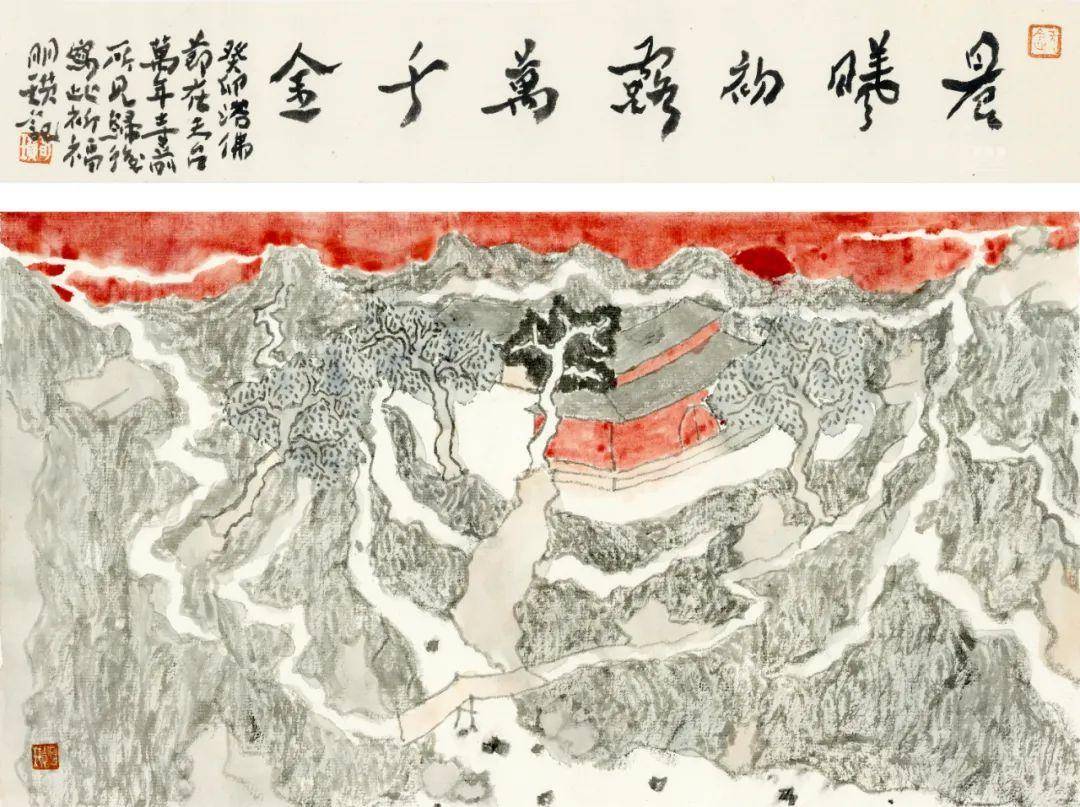 晨曦初露萬千金
癸卯浴佛
節在天台
萬年寺前
所見歸後
寫此祈福
記